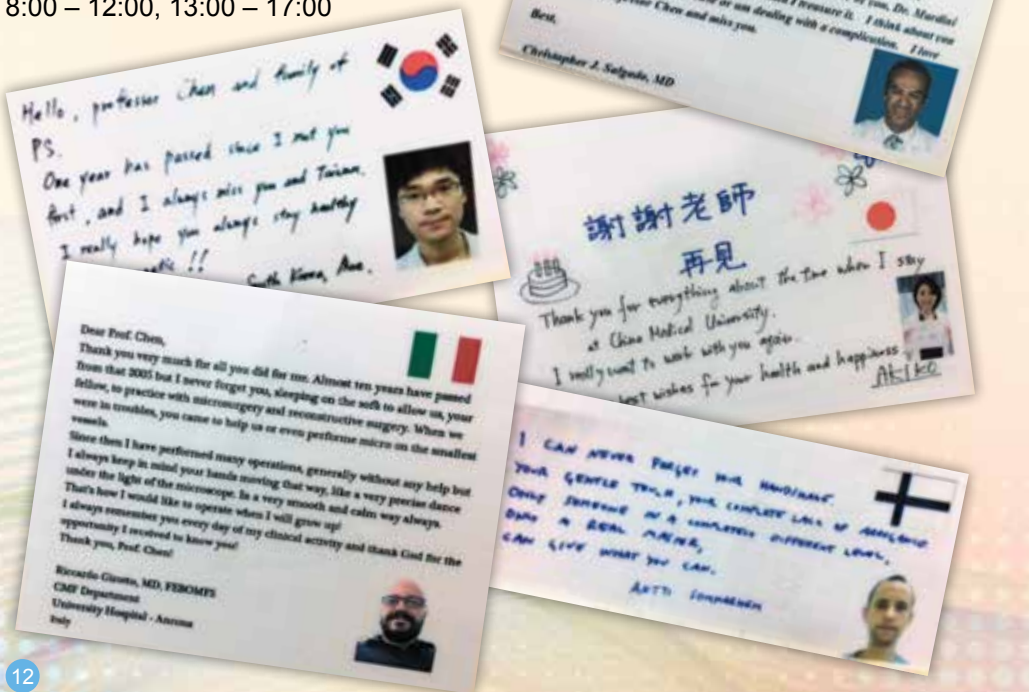 8:00 – 12:00, 13:00 – 17:00
of you, Dr. Mardini
I treasure it. I think about you
or am dealing with a complication. I love
Chen and miss you.
Best,
Christopher J. Salgado, MD
Hello, professor Chen and family of
PS.
One year has passed since I met you
first, and I always miss you and Taiwan.
I really hope you always stay healthy
!!
South Korea,
謝謝老師
再見
Thank you for everything about the time when I stay
at China Medical University.
I really want to work with you again.
best wishes for your health and happiness
AKIKO
Dear Prof. Chen,
Thank you very much for all you did for me. Almost ten years have passed
from that 2005 but I never forget you, sleeping on the soft to allow us, your
fellow, to practice with microsurgery and reconstructive surgery. When we
were in troubles, you came to help us or even performe micro on the smallest
vessels.
Since then I have performed many operations, generally without any help but
I always keep in mind your hands moving that way, like a very precise dance
under the light of the microscope. In a very smooth and calm way always.
That's how I would like to operate when I will grow up!
I always remember you every day of my clinical activity and thank God for the
opportunity I received to know you!
Thank you, Prof. Chen!
Riccardo MD, FEBOMFS
CMF Department
University Hospital - Ancona
Italy
I CAN NEVER FORGET YOUR HANDSHAKE
YOUR GENTLE TOUCH, YOUR COMPLETE LACK OF ARROGANCE
ONLY SOMEONE IN A COMPLETELY DIFFERENT LEVEL,
ONLY A REAL MASTER,
CAN GIVE WHAT YOU CAN.
ANTTI
12